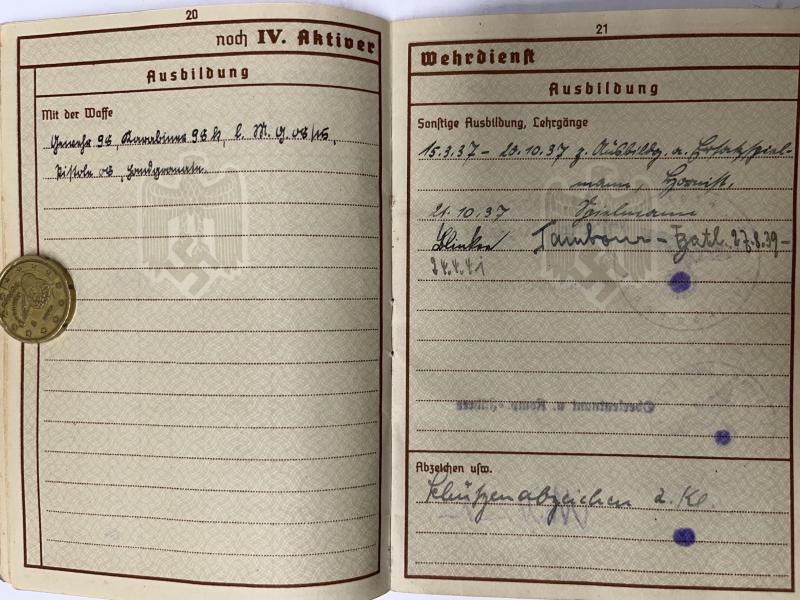 20
noch IV. Aktiver
Ausbildung
Mit der Waffe
Gewehr 98, Karabiner 98 k, l. M. G. 08/15,
Pistole 08, Handgranate.
21
Wehrdienst
Ausbildung
Sonstige Ausbildung, Lehrgänge
15.3.37 - 20.10.37 z. Ausbildg. a. Ersatzspiel-
mann, Hornist,
21.10.37 Spielmann
Tambour - 27.8.39 -
24.4.41
Oberleutnant u. Komp.-Führer
Abzeichen usw.
Schützenabzeichen 2. Kl.